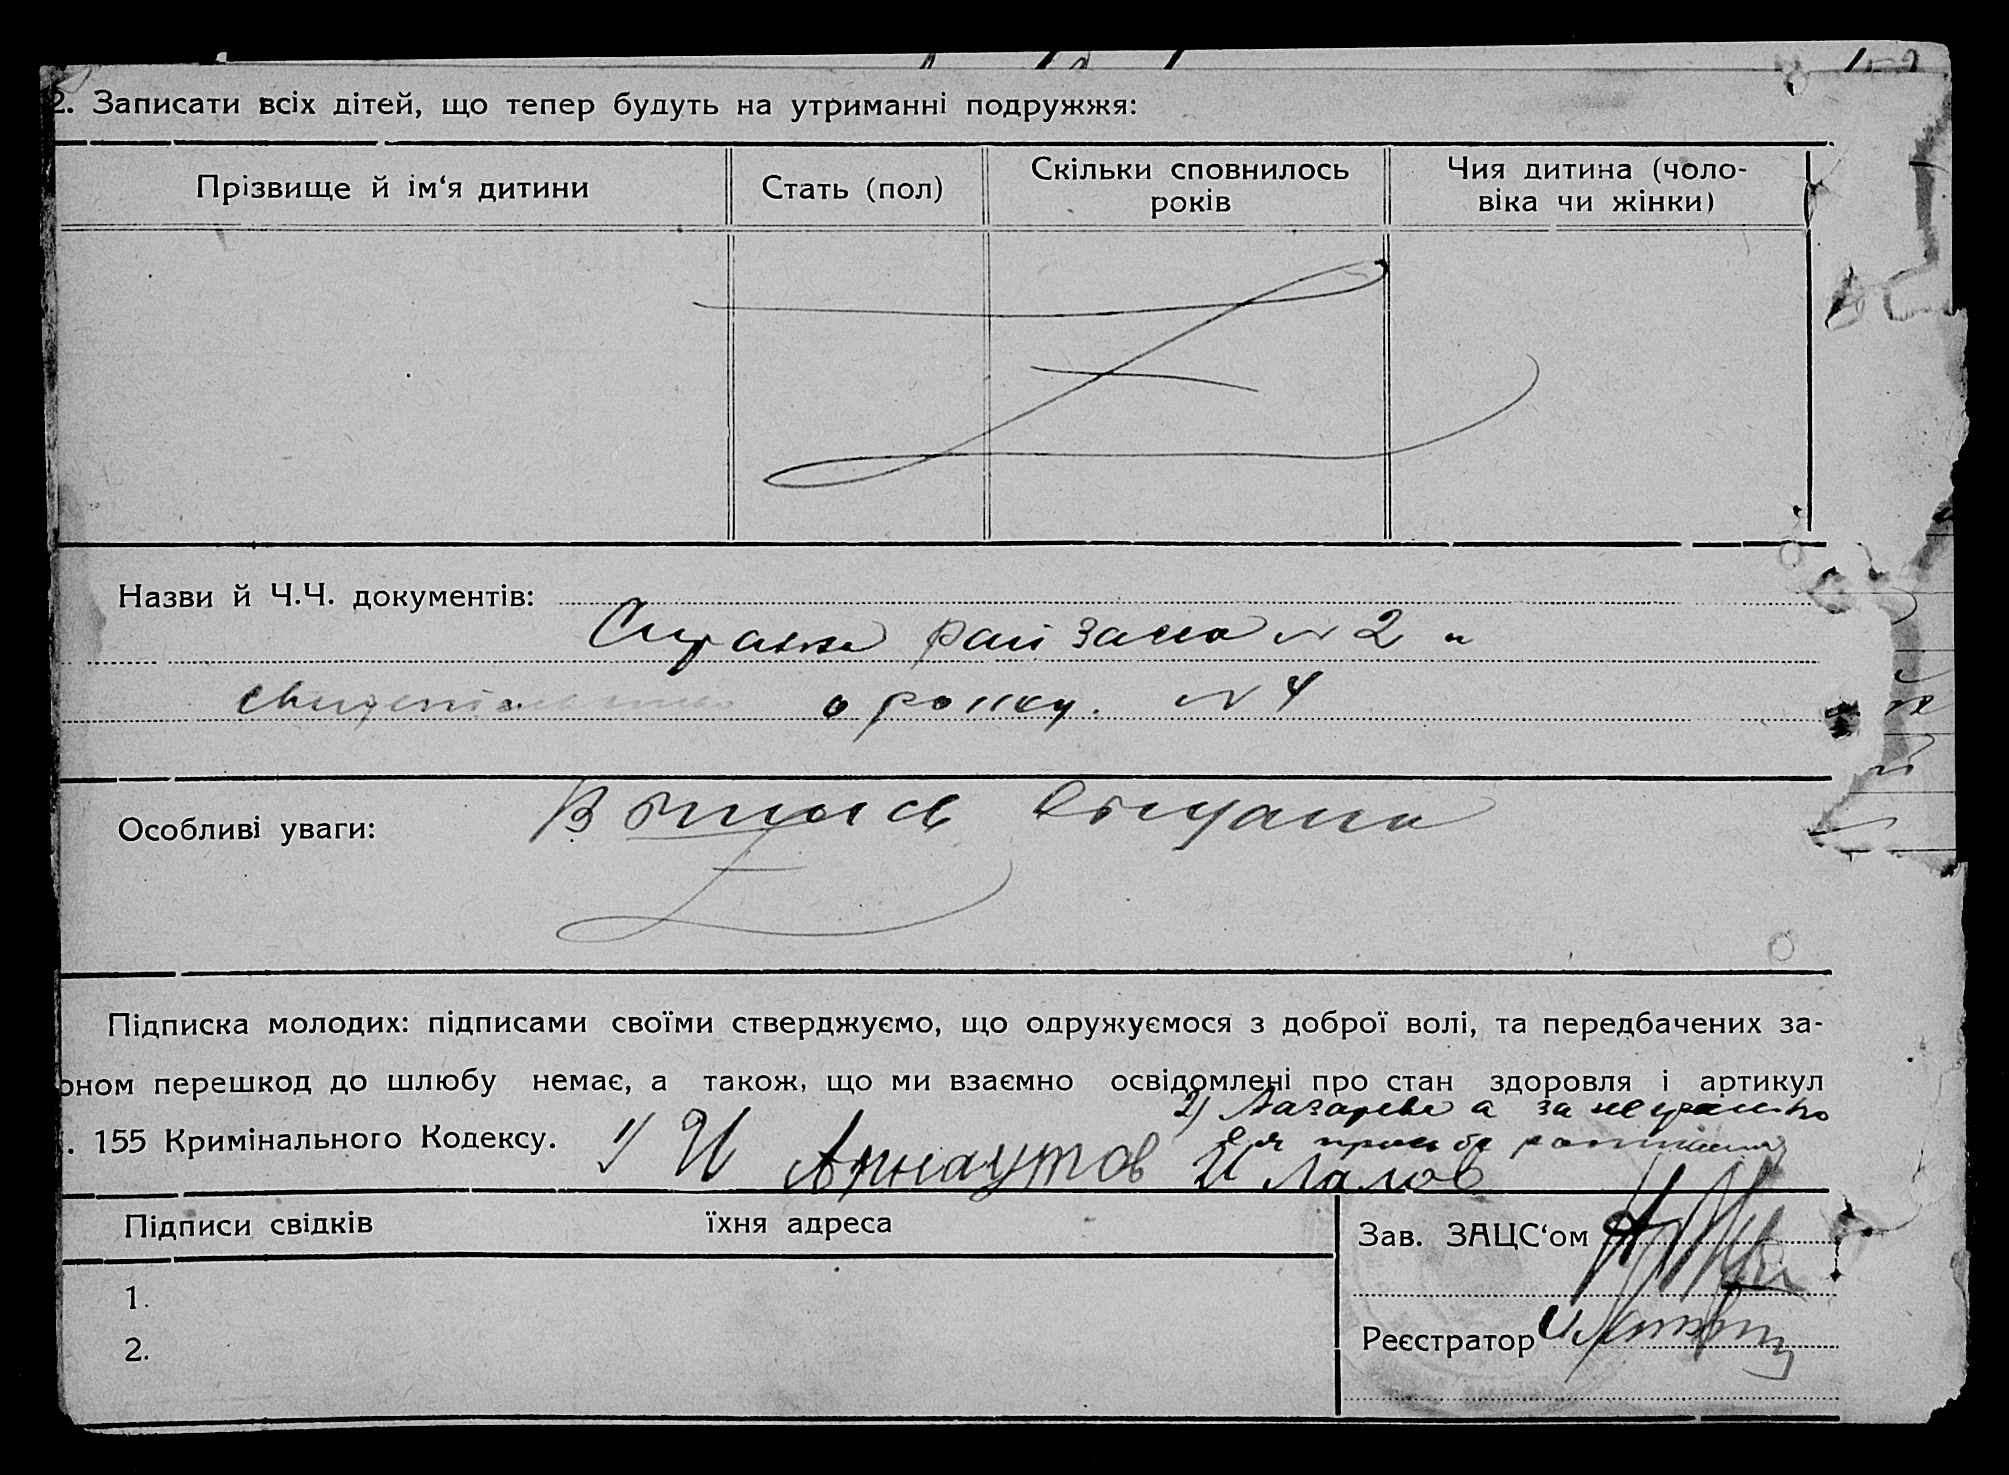 2. Записати всіх дітей, що тепер будуть на утриманні подружжя:
Прізвище й ім‘я дитини
Стать (пол)
Скільки сповнилось
років
Чия дитина (чоло-
віка чи жінки)
Назви й Ч.Ч. документів:
Справка рай загса № 2 и
свидетельство о рожку. № 4
Особливі уваги:
Выпись выдана
Підписка молодих: підписами своїми стверджуємо, що одружуємося з доброї волі, та передбачених за-
оном перешкод до шлюбу немає, а також, що ми взаємно освідомлені про стан здоровля і артикул
. 155 Кримінального Кодексу.
2) Лазарева а за неграмотно
1) И Арнаутов
ея просьбе
И Лалов
Підписи свідків
їхня адреса
1.
2.
Зав. ЗАЦС‘ом
Реєстратор